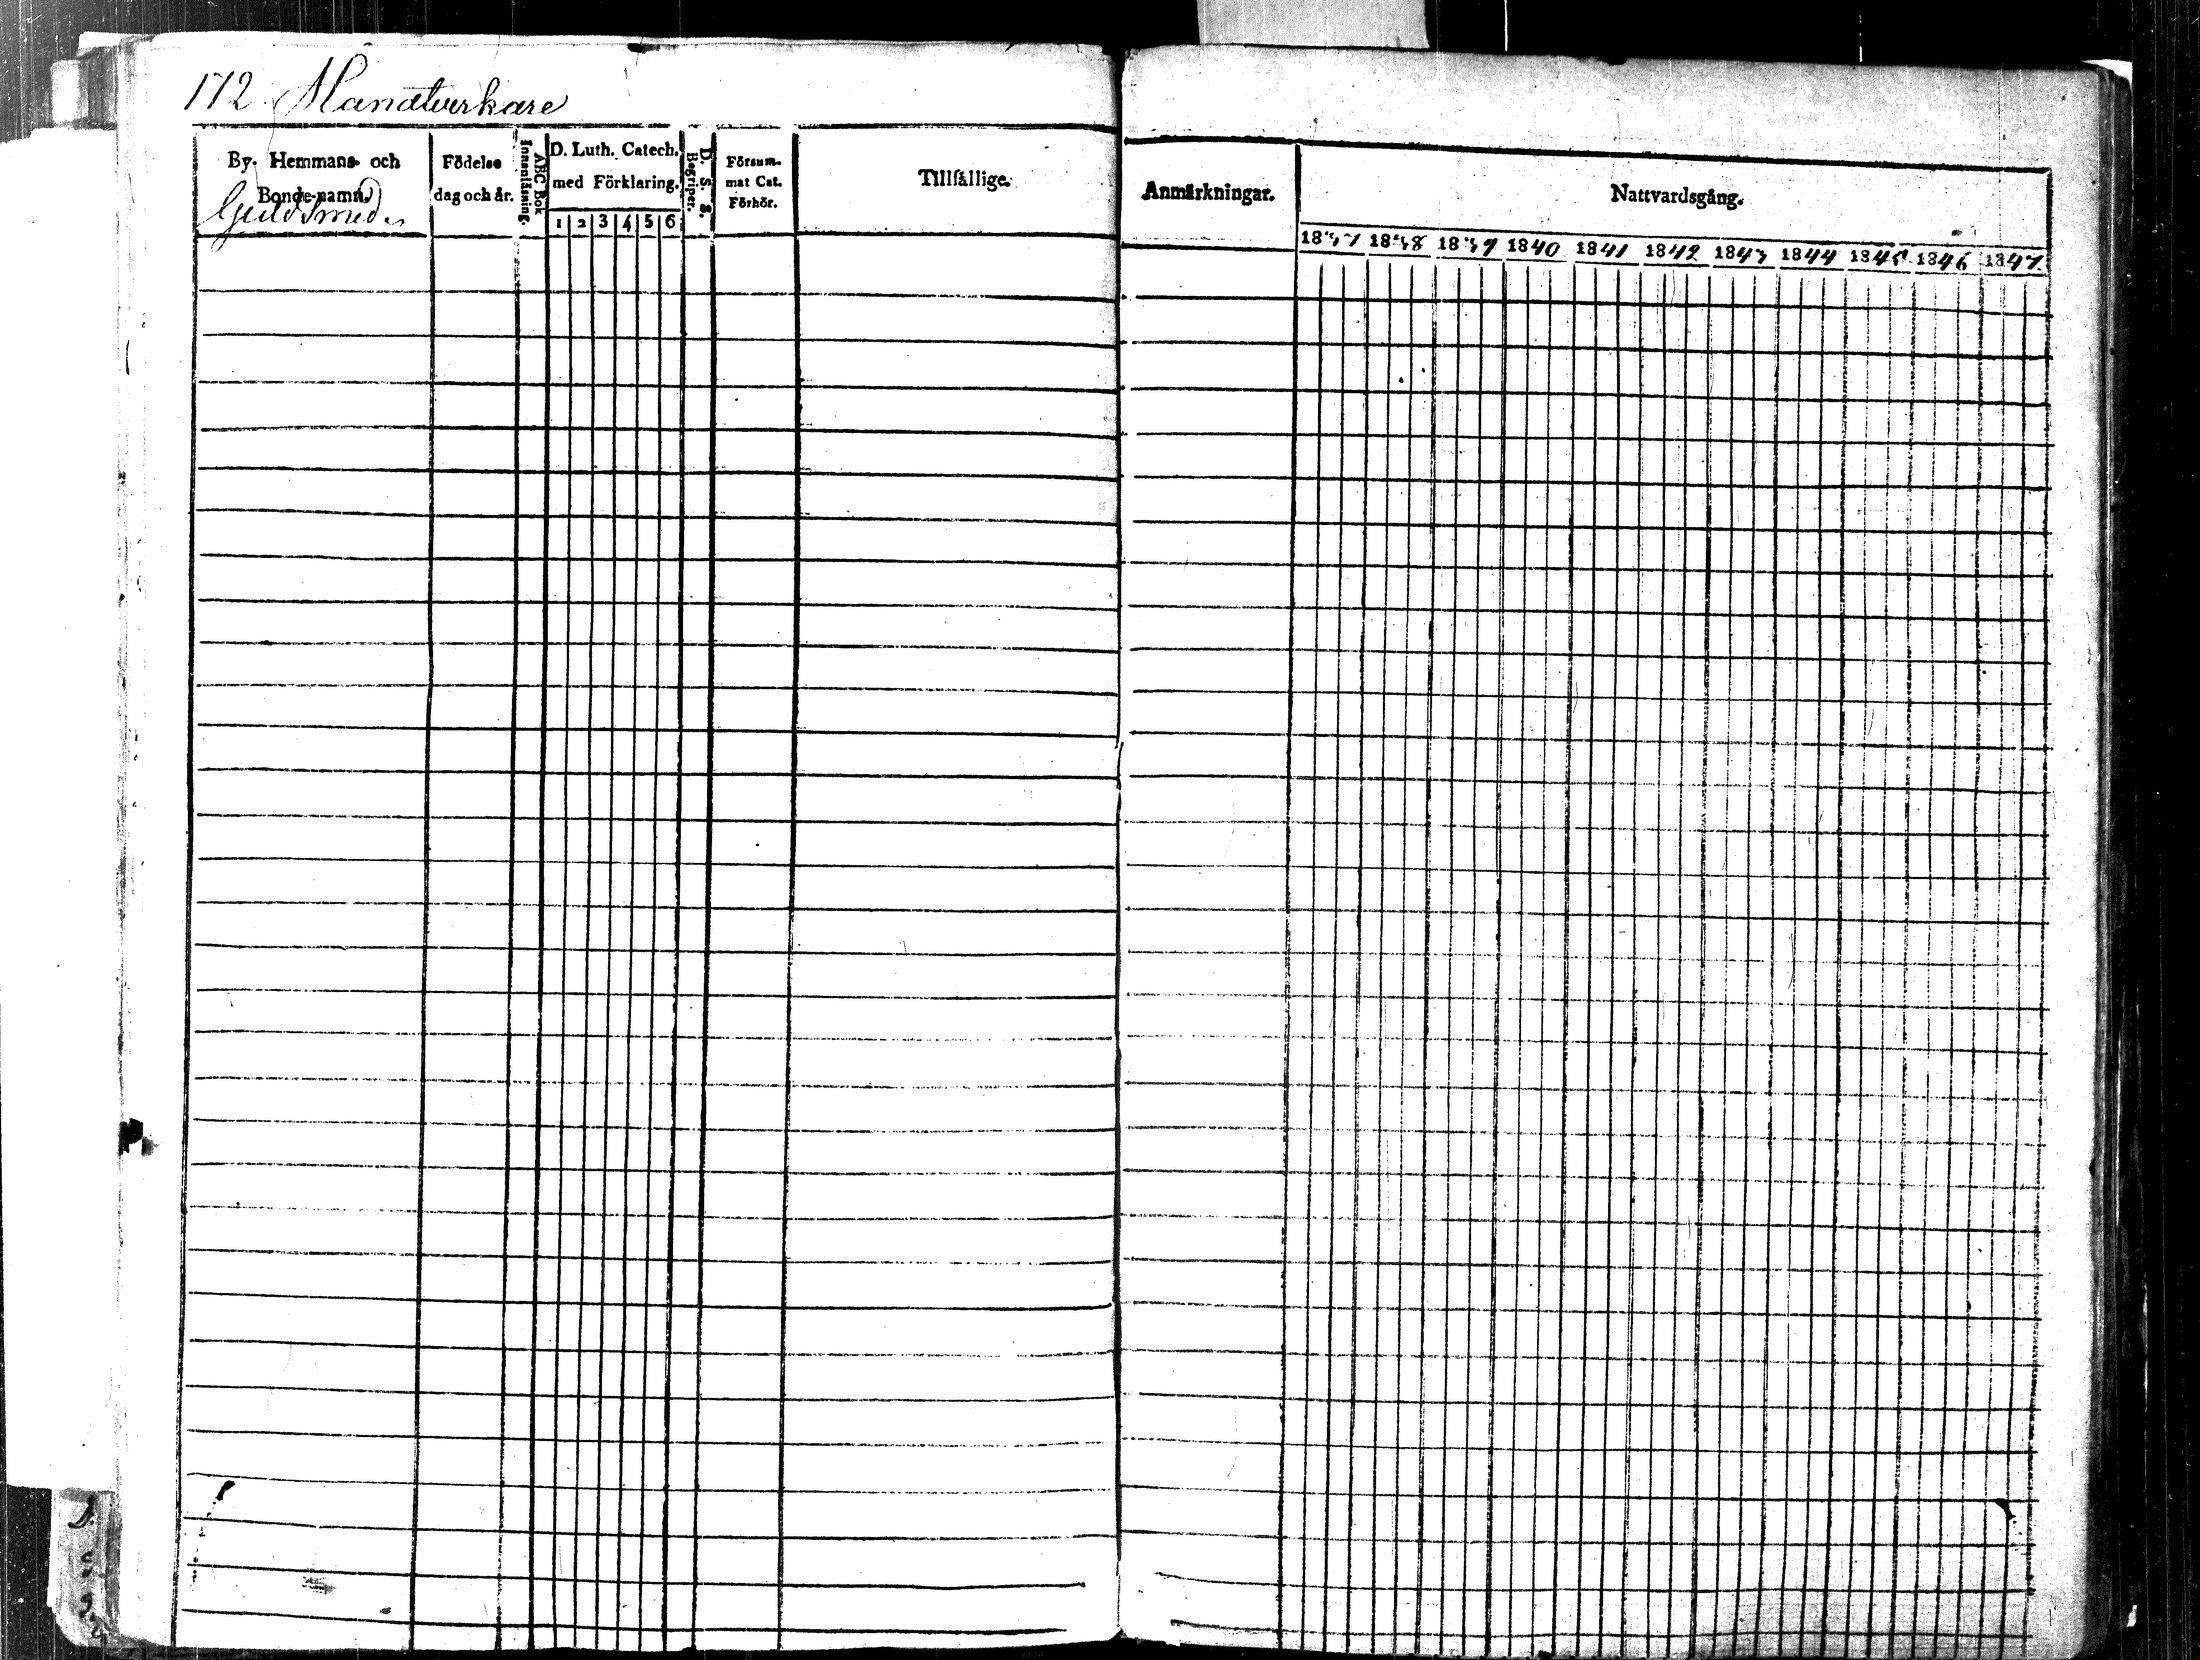 172. Handtverkare
By- Hemmans- och
Bonde-namn.
Guldsmeder
Födelse
dag och år.
ABC Bok
Innanläsning.
D. Luth. Catech.
med Förklaring.
1 2 3 4 5 6
D. S. S.
Begriper.
Försum-
mat Cat.
Förhör.
Tillfällige.
Anmärkningar.
Nattvardsgång.
1837 1838 1839 1840 1841 1842 1843 1844 1845 1846 1847